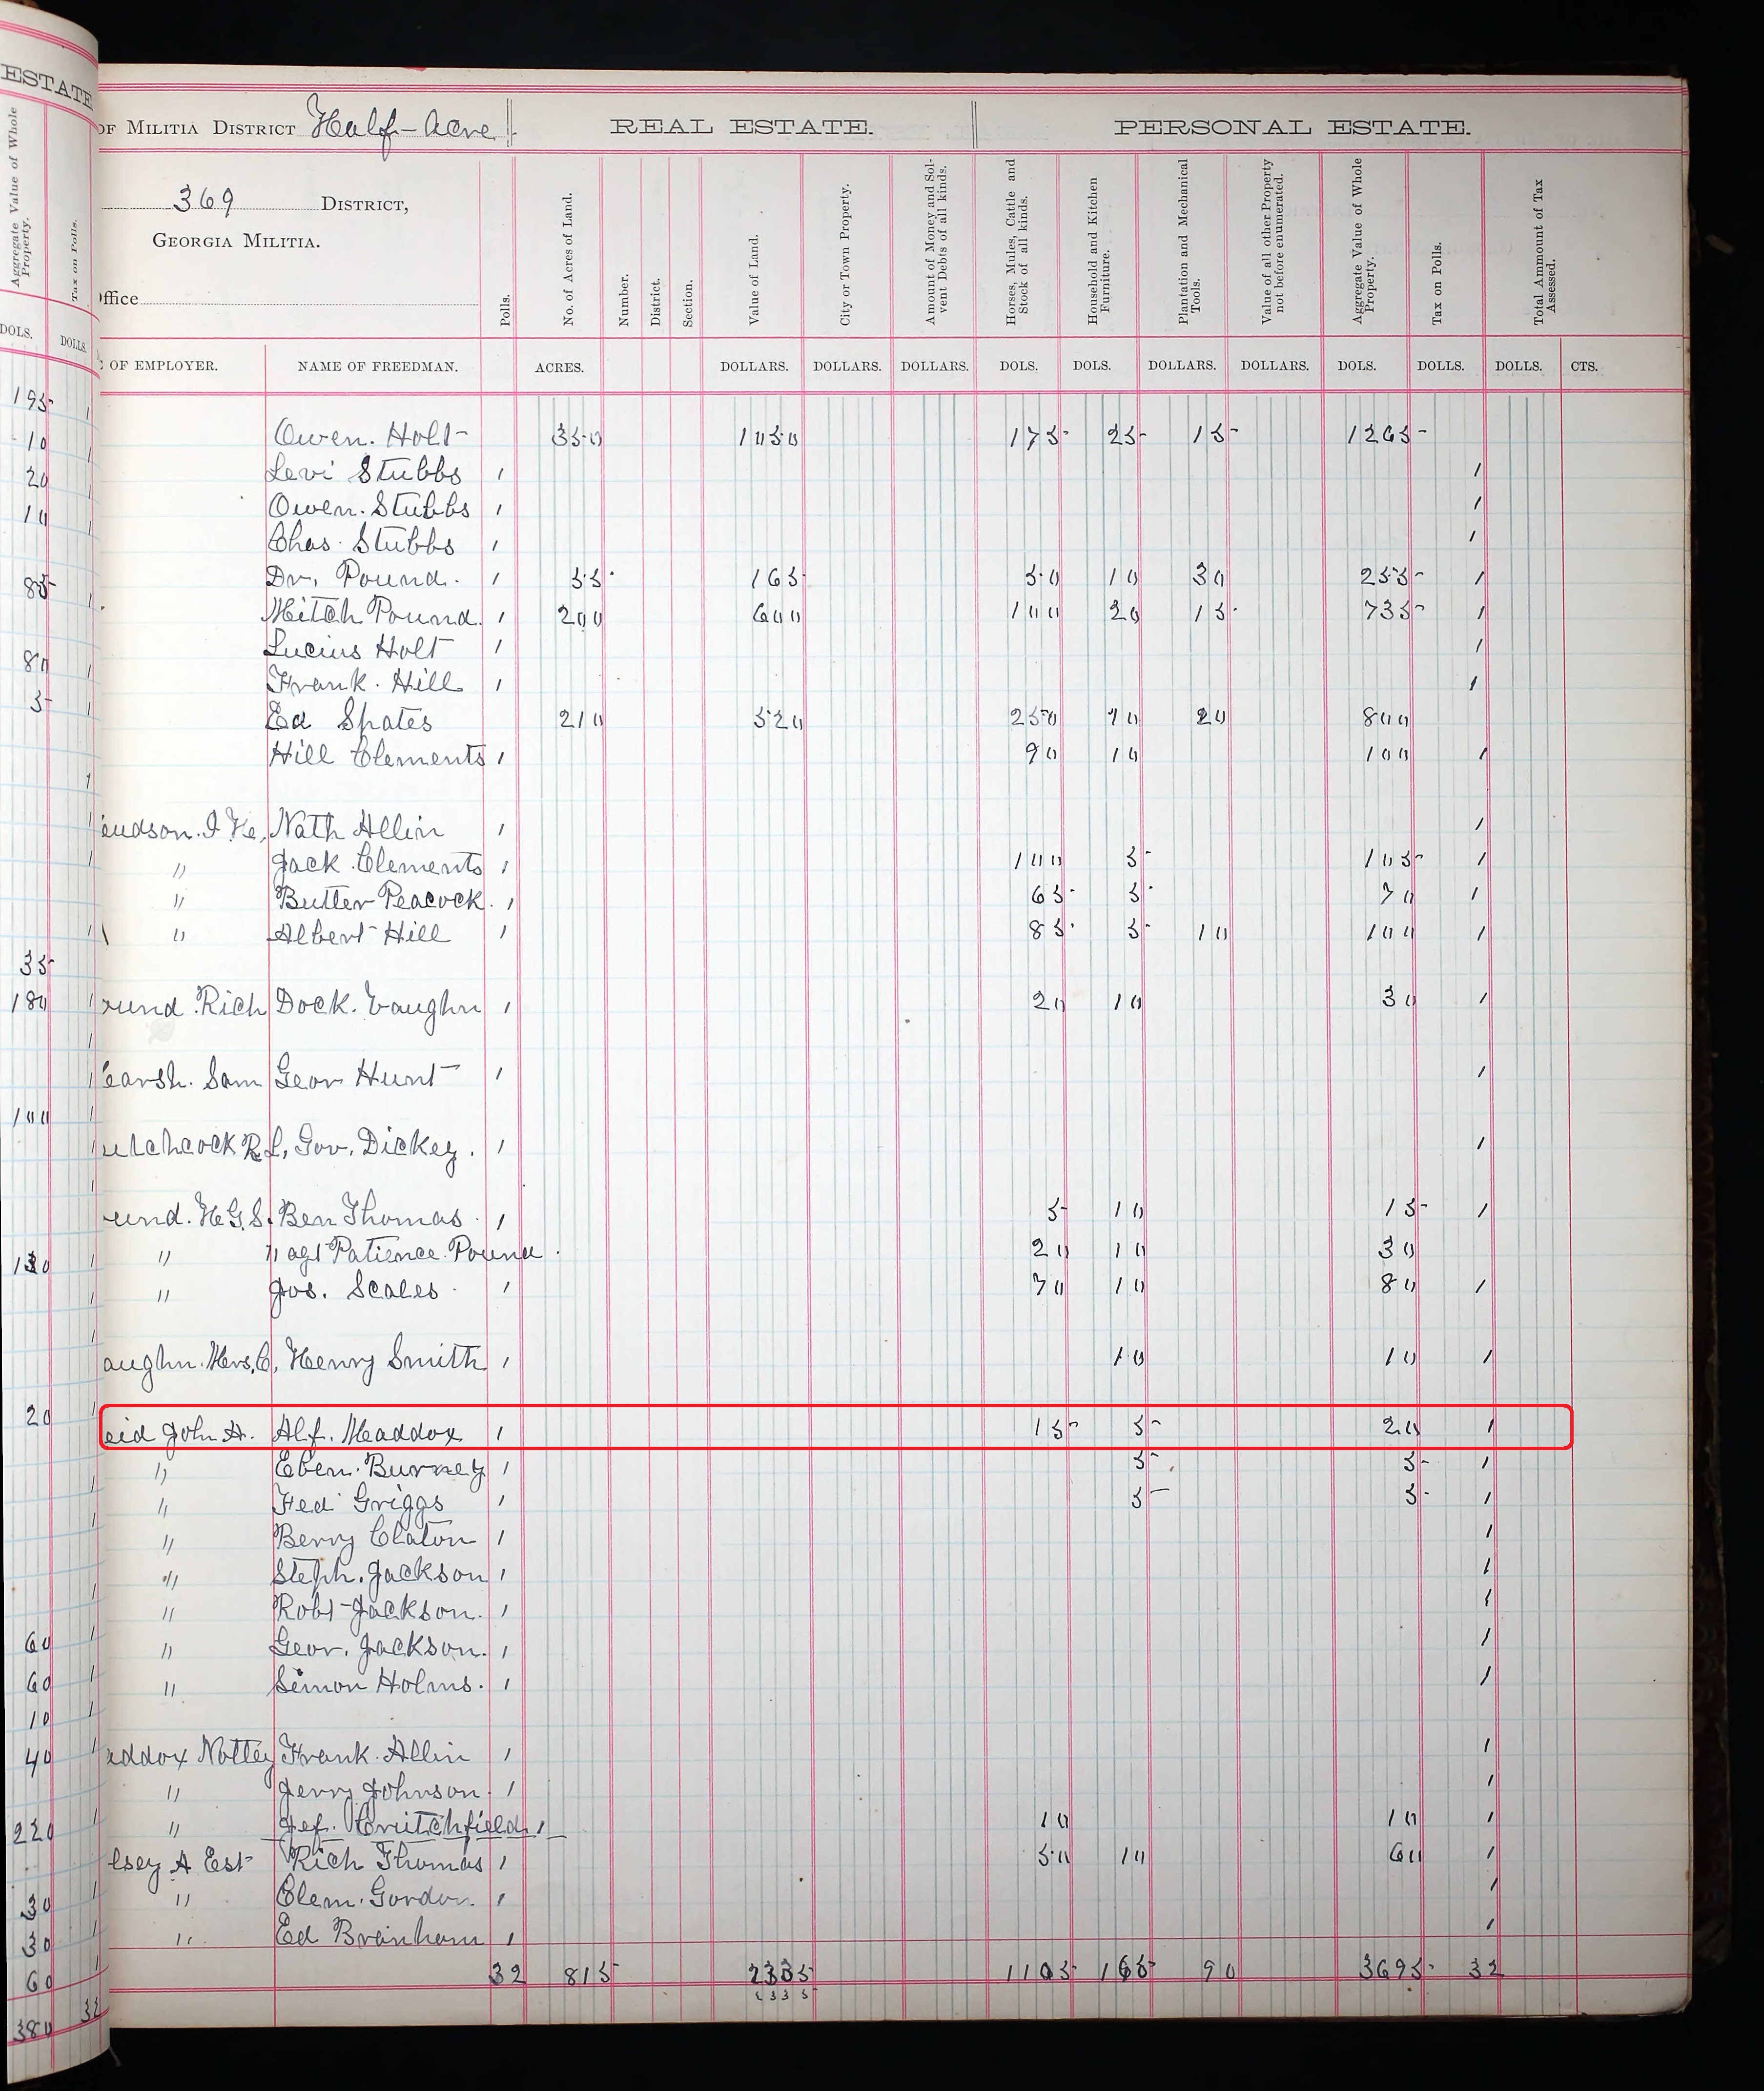 ESTATE
Aggregate Value of Whole Property.
Tax on Polls.
DOLS. DOLLS.
195
10
20
10
85
80
5
35
180
100
130
20
60
60
10
40
220
30
30
60
380 32
OF MILITIA DISTRICT Half-Acre REAL ESTATE. PERSONAL ESTATE.
369 DISTRICT,
GEORGIA MILITIA.
ffice
Polls. No. of Acres of Land. Number. District. Section. Value of Land. City or Town Property. Amount of Money and Solvent Debts of all kinds. Horses, Mules, Cattle and Stock of all kinds. Household and Kitchen Furniture. Plantation and Mechanical Tools. Value of all other Property not before enumerated. Aggregate Value of Whole Property. Tax on Polls. Total Ammount of Tax Assessed.
OF EMPLOYER. NAME OF FREEDMAN. ACRES. DOLLARS. DOLLARS. DOLLARS. DOLS. DOLS. DOLLARS. DOLLARS. DOLS. DOLLS. DOLLS. CTS.
Owen. Holt 350 1050 175 25 15 1265
Levi Stubbs 1 1
Owen. Stubbs 1 1
Chas. Stubbs 1 1
Dr. Pound. 1 55 165 50 10 30 255 1
Mitch Pound. 1 200 600 100 20 15 735 1
Lucius Holt 1 1
Frank. Hill 1 1
Ed Spates 210 520 250 10 20 800
Hill Clements 1 90 10 100 1
eudson. I He, Nath Allin 1 1
" Jack Clements 1 100 5 105 1
" Butter Peacock. 1 65 5 70 1
" Albert Hill 1 85 5 10 100 1
ound Rich Dock. Vaughn 1 20 10 30 1
earsh. Sam Geor Hunt 1 1
utchcock R L, Gov. Dickey. 1 1
ound. H G. S. Ben Thomas 1 5 10 15 1
" " agt Patience Pound. 20 10 30
" Jos. Scales 1 70 10 80 1
aughn. Mrs. C, Henry Smith 1 10 10 1
eid John A. Alf. Maddox 1 15 5 20 1
" Eben. Burney 1 5 5 1
" Fed Griggs 1 5 5 1
" Berry Claton 1 1
" Steph. Jackson 1 1
" Robt Jackson. 1 1
" Geor. Jackson. 1 1
" Simon Holms. 1 1
addox Nottey Frank. Allin 1 1
" Jerry Johnson. 1 1
" Jef. Crutchfield. 1 10 10 1
lsey A Est Rich Thomas 1 50 10 60 1
" Clem. Gordon 1 1
" Ed Branham 1 1
32 815 2335 1105 165 90 3695 32
2335